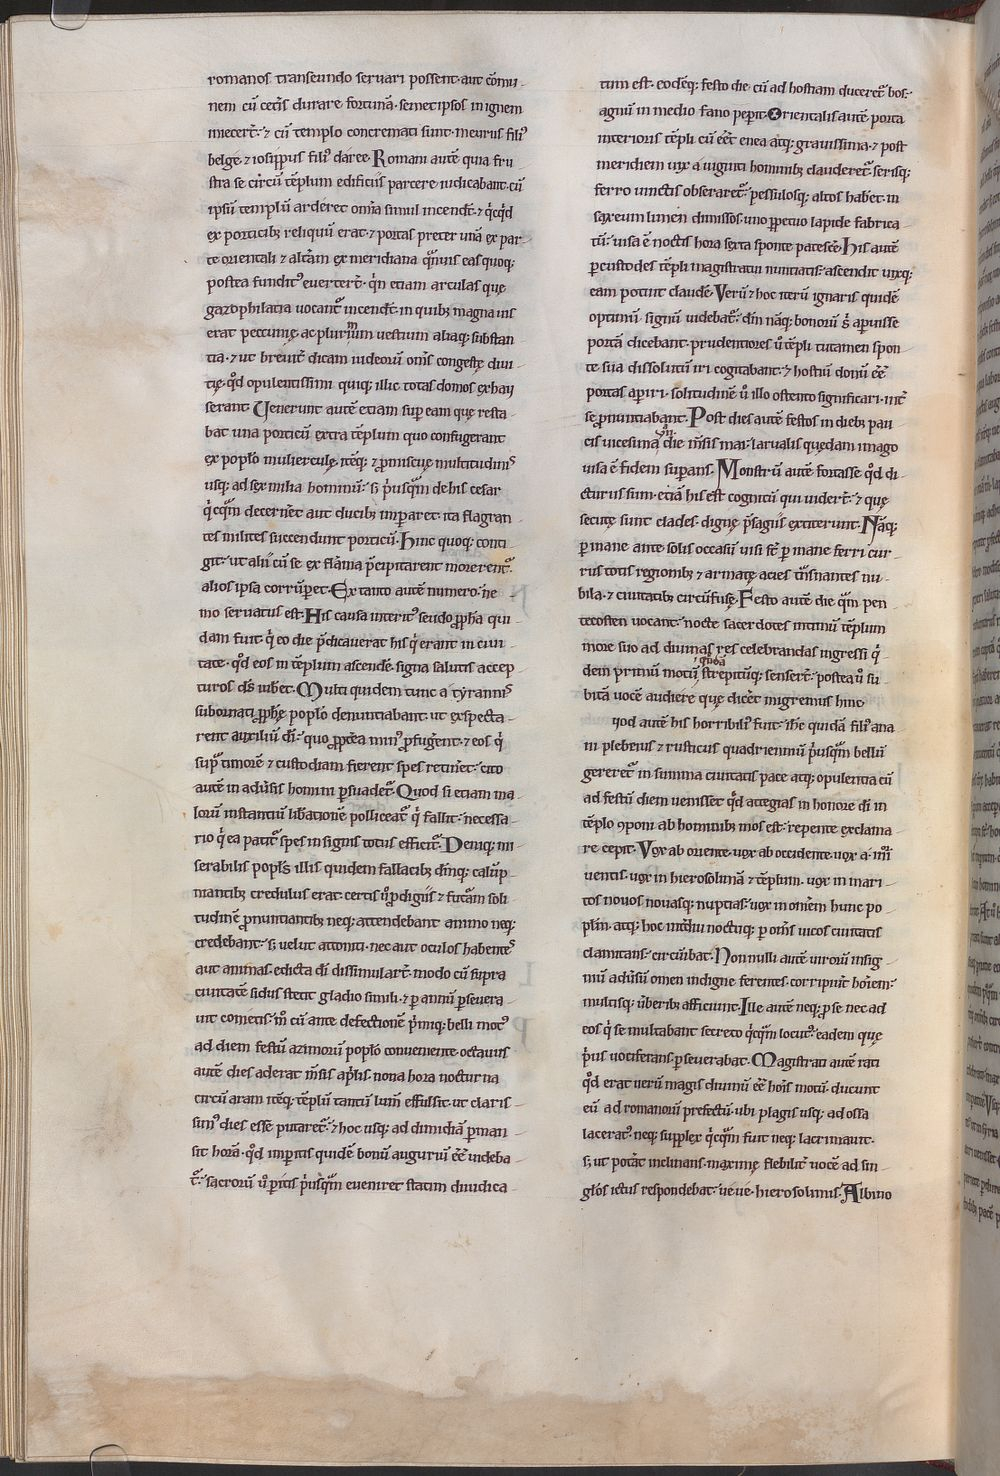 romanos transeundo seruari possent· aut cōmu-
nem cū cet̄is durare fortunā· semet ipsos in ignem
miecer̄t· ⁊ cū templo concremati sunt· meirus fili᾽
belge· ⁊ iosippus fili᾽ daree· Romani autē quia fru
stra se circū tēplum edificiis parcere iudicabant· cū
ipsū templū arderet om̄ia simul incendt̄· ⁊ q̇cq̇d
ex porticib; reliquū erat· ⁊ portas preter unā ex par-
te orientali ⁊ alt̄am ex meridiana q̄muis eas quoq;
postea fundit᾽ euerter̄t· q̇n etiam arculas quę
gazophilatia uocant᷑ incendt̄· in quib; magna uis
erat peccunię· ac plurimum uestium aliaq; substan
tia· ⁊ ut breuit̄ dicam iudeorū om̄s congestę diui
tię· q̄d opulentissimi quiq; illic totas domos exhau
serant· Uenerunt autē etiam sup eam quę resta-
bat una porticū extra tēplum quo confugerant
ex pop̄lo mulierculę· itēq; ⁊ p̄miscuę multitudinis
usq; ad sex milia hominū· s; p̄usq̄m de his cesar
q̇cq̄m decerner̄t aut ducib; imparet· ita flagran
tes milites succendunt porticū· Hinc quoq; conti-
git· ut alii cū se ex flāma p̄cipitarent morerent᷑·
alios ipsa corrūperet· Ex tanto autē numero· ne-
mo seruatus est· His causa interit᾽ seudo ꝓpha qui
dam fuit· q̇ eo die p̄dicauerat his q̇ erant in ciui
tate· q̄d eos in tēplum ascende᷑· signa salutis accep
turos d̄s iuber̄t· Multi quidem tunc a tyrannis
subornati ꝓphę pop̄lo denuntiabant· ut exspecta-
rent auxiliū d̄i· quo ꝓpt̄ea min᾽ ꝓfuger̄t· ⁊ eos q̇
sup̄ timorē ⁊ custodiam fierent spes retiner̄t· cito
autē in aduersis homini psuadet᷑· Quod si etiam ma
lorū instantiū lib̄ationē polliceat᷑ q̇ fallit· necessa-
rio q̇ ea patit᷑ spes insignis totus efficit᷑· Deniq; mi
serabilis popl̄s illis quidem fallacib; d̄inq; calūp
niantib; credulus erat· certis ū ꝓdigiis ⁊ futurā soli
tudinē ꝓnuntiantib; neq; attendebant animo neq;
credebant· s; uelut attoniti· nec aut oculos habentes
aut animas· edicta d̄i dissimular̄t· modo cū supra
ciuitatē sidus stetit gladio simili· ⁊ p annū pseuera-
uit cometis· m̄ cū ante defectionē p̄miq; belli mot᾽
ad diem festū azimorū pop̄lo conueniente· octauus
autē dies aderat m̄sis ap̄lis· nona hora nocturna
circū aram itēq; tēplū tantū lum̄ effulsit· ut claris-
sim᾽ dies esse putaret᷑· ⁊ hoc usq; ad dimidiā pman-
sit horā· q̄d imperitis quidē bonū auguriū ēē uideba
t᷑· sacrorū ū pitis p̄usq̄m eueniret statim diiudica-
tum est· eodēq; festo die cū ad hostiam duceret᷑ bos·
agnū in medio fano pepit· Orientalis autē porta
interioris tēpli cū eēt enea atq; grauissima· ⁊ post
meridiem uix a uiginti hominib; clauderet᷑· serisq;
ferro uinctis obseraret᷑· pessulosq; altos haberet in
saxeum limen dimissos· uno ppetuo lapide fabrica
tū· uisa ē noctis hora sexta sponte patescē· His autē
p custodes tēpli magistratui nuntiatis· ascendit uixq;
eam potuit claudē· Verū ⁊ hoc iterū ignaris quidē
optimū signū uidebat᷑· d̄m nāq; bonorū s̄ apuisse
portā dicebant· prudentiores ū tēpli tutamen spon-
te sua dissolutū iri cogitabant· ⁊ hostiū donū ēē
portas aperiri· solitudinē ū illo ostento significari· int̄
se ꝓnuntiabant· Post dies autē festos in dieb; pau
cis uicesima die m̄sis mai· laruális quędam imago
uisa ē fidem supans· Monstrū autē fortasse q̄d di-
cturus sum· etiā his est cognitū qui uider̄t· ⁊ quę
secutę sunt clades· dignę p̄sagiis extiterunt· Nāq;
p mane ante solis occasū uisi st̄ p mane ferri cur-
rus totis regionib; ⁊ armatę acies t̄nsnantes nu-
bila· ⁊ ciuitatib; circūfusę· Festo autē die q̄m pen-
tecosten uocant· nocte sacerdotes intimū tēplum
more suo ad diuinas res celebrandas ingressi q̇
dem primū motū strepitūq; senser̄t· postea ū su-
bitā uocē audiere quę dicer̄t migremus hinc·
qod autē his horribili᾽ fuit· ih̄e quidā fili᾽ ana
ni plebeius ⁊ rusticus quadriennium p̄usq̄m bellū
gereret᷑ in summa ciuitatis pace atq; opulentia cū
ad festū diem uenisset q̄d attegias in honore d̄i in
tēplo ꝯponi ab hominib; mos est· repente exclama-
re cepit· Vox ab oriente· uox ab occidente· uox a· iiii·
uentis· uox in hierosolimā ⁊ tēplum· uox in mari-
tos nouos nouasq; nuptias· uox in omēm hunc po-
pl̄m· atq; hoc int̄diu noctuq; p om̄s uicos ciuitatis
clamitans· circūibat· Nonnulli autē uirorū insig-
niū aduersū omen indigne ferentes· corripiunt hōiem·
multisq; uberib; afficiunt· Ille autē neq; p se nec ad
eos q̇ se multabant secreto q̇cq̄m locut᾽· eadem quę
p̄us uociferans pseuerabat· Magistrati autē rati
q̄d erat uerū magis diuinū ēē hōis motū· ducunt
eū ad romanorū prefectū· ubi plagis usq; ad ossa
lacerat᾽ neq; supplex q̇cq̄m fuit neq; lacrimauit·
s; ut poterat inclinans· maximę flebilit̄ uocē ad sin-
glos ictus respondebat· ue ue· hierosolimis· Albino